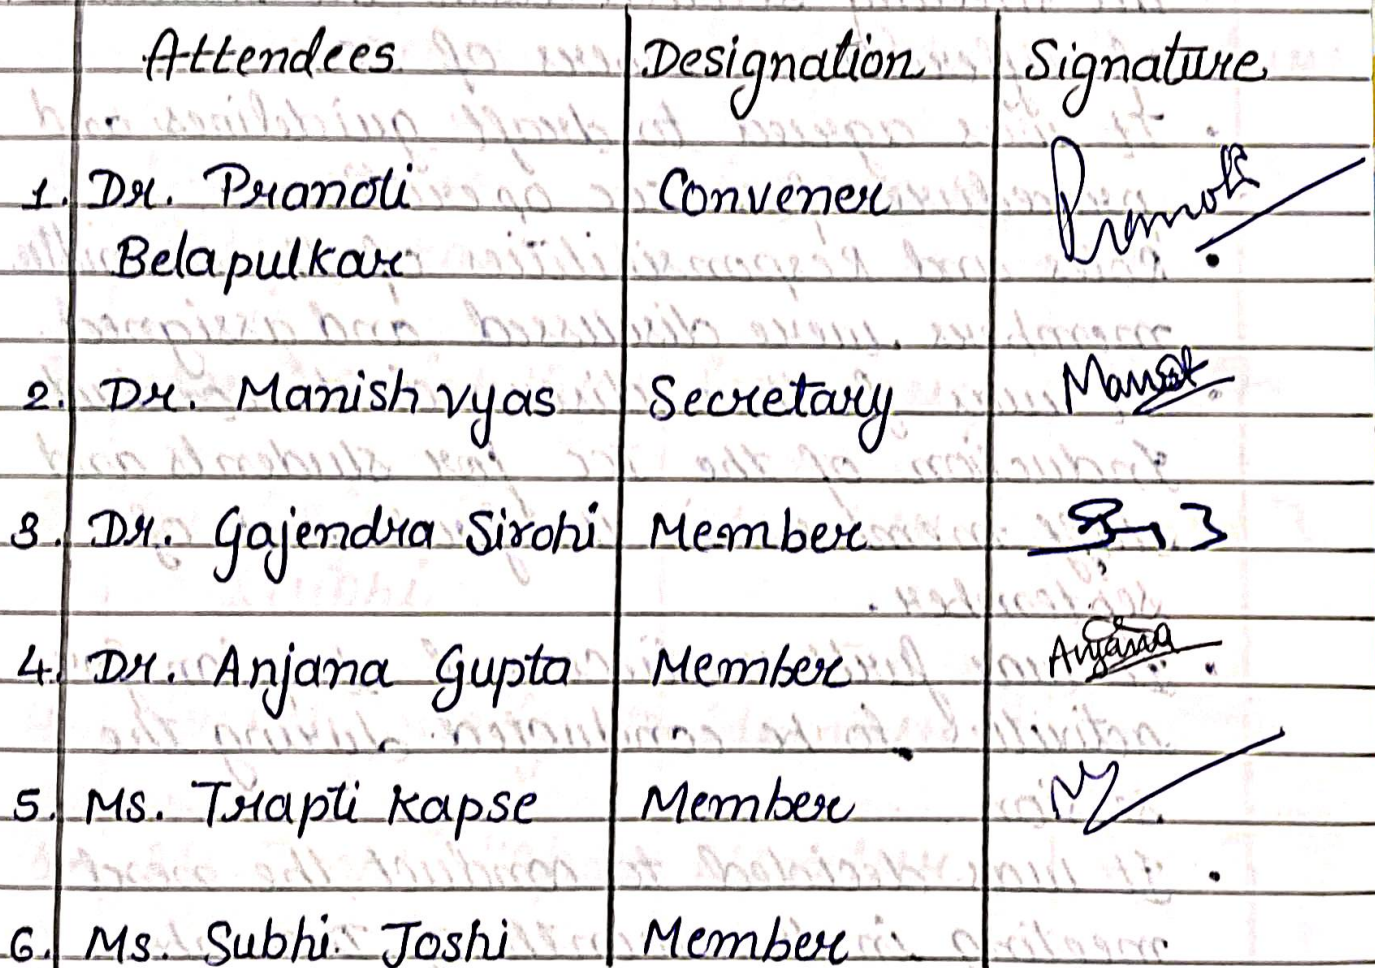 Attendees Designation Signature
1. Dr. Pranoti Convener Pranoti
Belapulkar
2. Dr. Manish Vyas Secretary
3. Dr. Gajendra Sirohi Member
4. Dr. Anjana Gupta Member Anjana
5. Ms. Trapti Kapse Member
6. Ms. Subhi Joshi Member